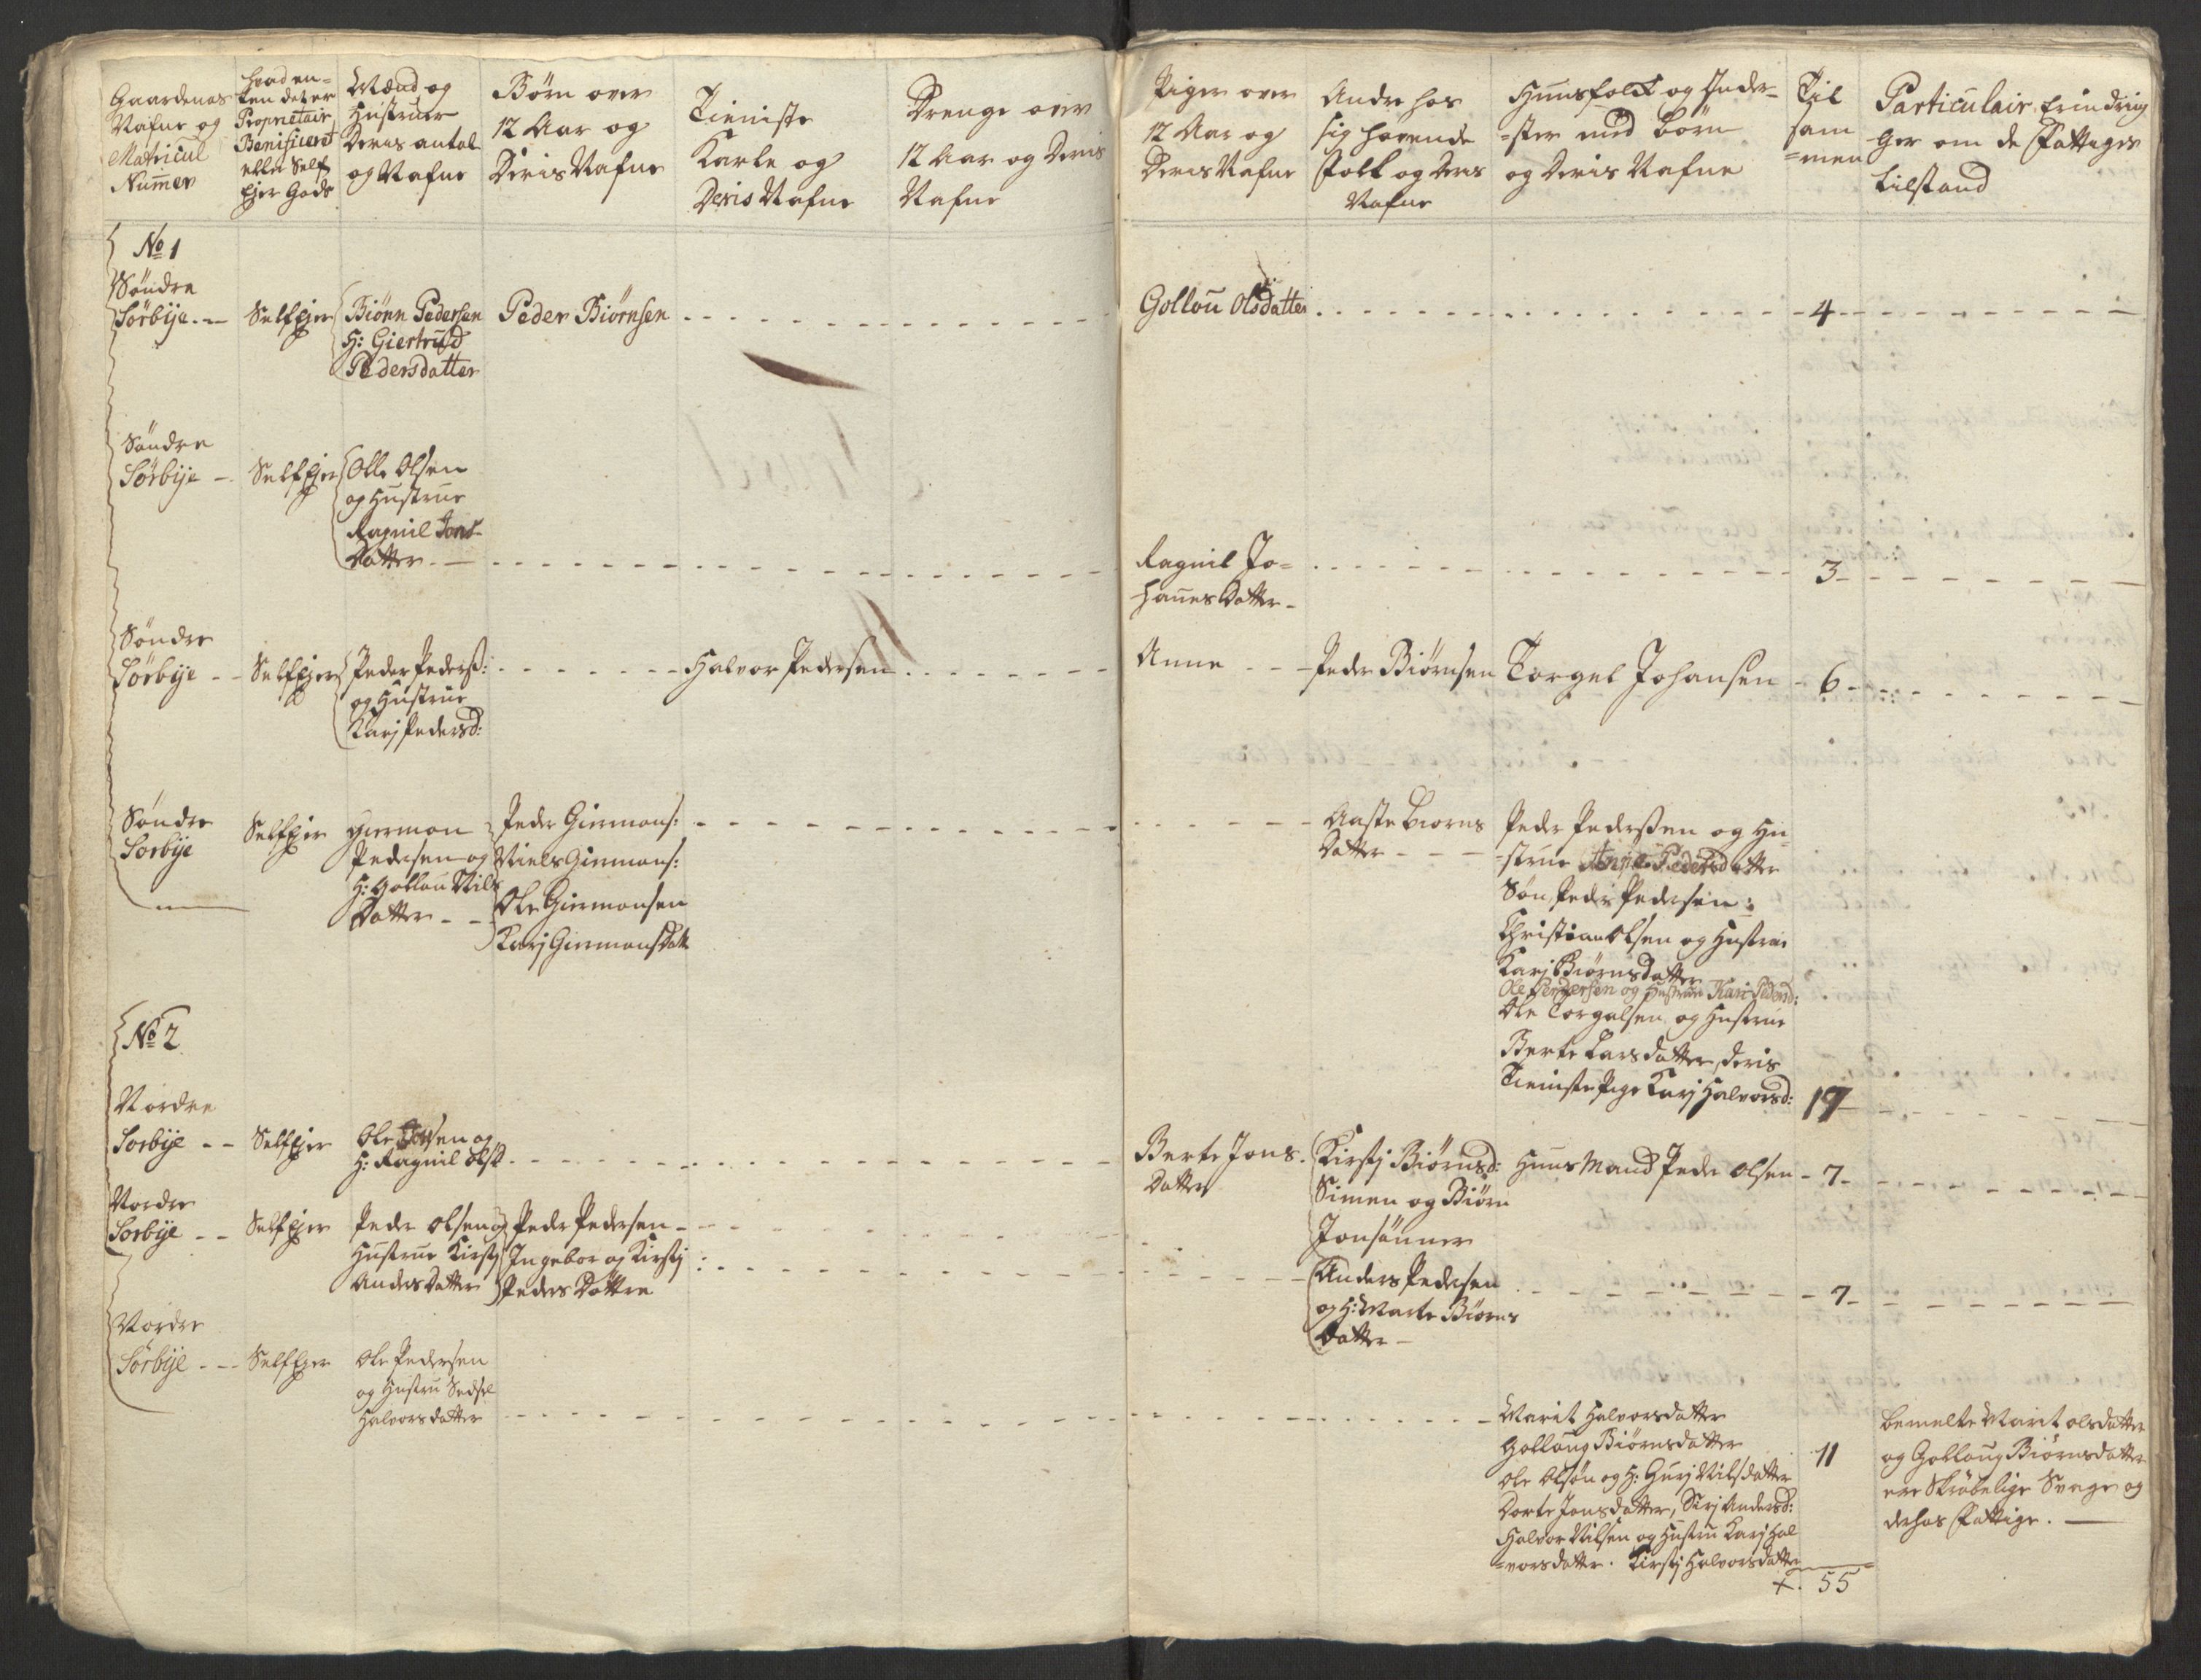 Gaardenes
Nafne og
Matricul
Numer
hvad en-
ten det er
Proprietair
Beneficeret
eller Self
Ejer Gods
Mænd og
Hustruer
Deris antal
og Nafne
Børn over
12 Aar og
Deris Nafne
Tieniste
Karle og
Deris Nafne
Drenge over
12 Aar og Deris
Nafne
Piger over
12 Aar og
Deris Nafne
Andre hos
sig havende
Folk og Deris
Nafne
Huusfolck og Inder-
=ster med børn
og Deris Nafne
Til
sam
=men
Particulair Erindrin
ger om de Fattiges
tilstand
No 1
Söndre
Sörbÿe
SelfEjer
Biönn Pedersen
H: Giertrud
Pedersdatter
Peder Biörnsen
Gollou Olsdatter
4
Söndre
Sörbÿe
SelfEjer
Olle Olsen
og Hustrue
Ragnil Jons-
Datter
Ragnil Jo=
hanesDatter
3
Söndre
Sörbÿe
SelfEjer
Peder Peders:
og Hustrue
Karj Pedersd:
Halvor Pedersen
Anne
Peder Biörnsen
Torgel Johansen
6
Söndre
Sorbÿe
SelfEjer
Giermon
Pedersen og
H: Gollou Nils
Datter
Peder Giermons:
Niels Giermons:
Ole Giermonsen
Karj GiermonsDatt
Aaste Biorns
Datter
Peder Pedersen og Hu
=strue Anne Pedersdatter
Søn Peder Pedersen:
Christian Olsen og Hustrue
Karj Biörnsdatter
Ole Pedersen og Hustrue Kari Pedersd:
Ole Torgalsen og Hustrue
Berte Larsdatter, deris
Tieniste Pige Karj Halvorsd:
17
No 2
Nordre
Sorbÿe
SelfEjer
Ole Jonsen og
H: Ragnil Olsd
Berte Jons
Datter
Kirstj Biörnsd:
Simen og Biörn
Jonsönner
Huus Mand Peder Olsen
7
Nordre
Sorbÿe
SelfEjer
Peder Olsen og
Hustrue Kirstj
AndersDatter
Peder Pedersen
Ingebor og Kirstj
Peders Döttre
Anders Pedersen
og H: Marte Biörns
Datter
7
Nordre
Sörbÿe
SelfEjer
Ole Pedersen
og Hustru Sedsel
Halvorsdatter
Marit Halvorsdatter
Golloug Biörnsdatter
Ole Olsön og H: Gurj Nilsdatter
Dorte Jonsdatter, Sirj Andersd:
Halvor Nilsen og Hustru Karj Hal
=vorsdatter. Kirstj Halvorsdatter
11
bemelte Marit olsdatter
og Golloug Biörnsdatter
ere Skröbelige Svage og
derhos Fattige.
55